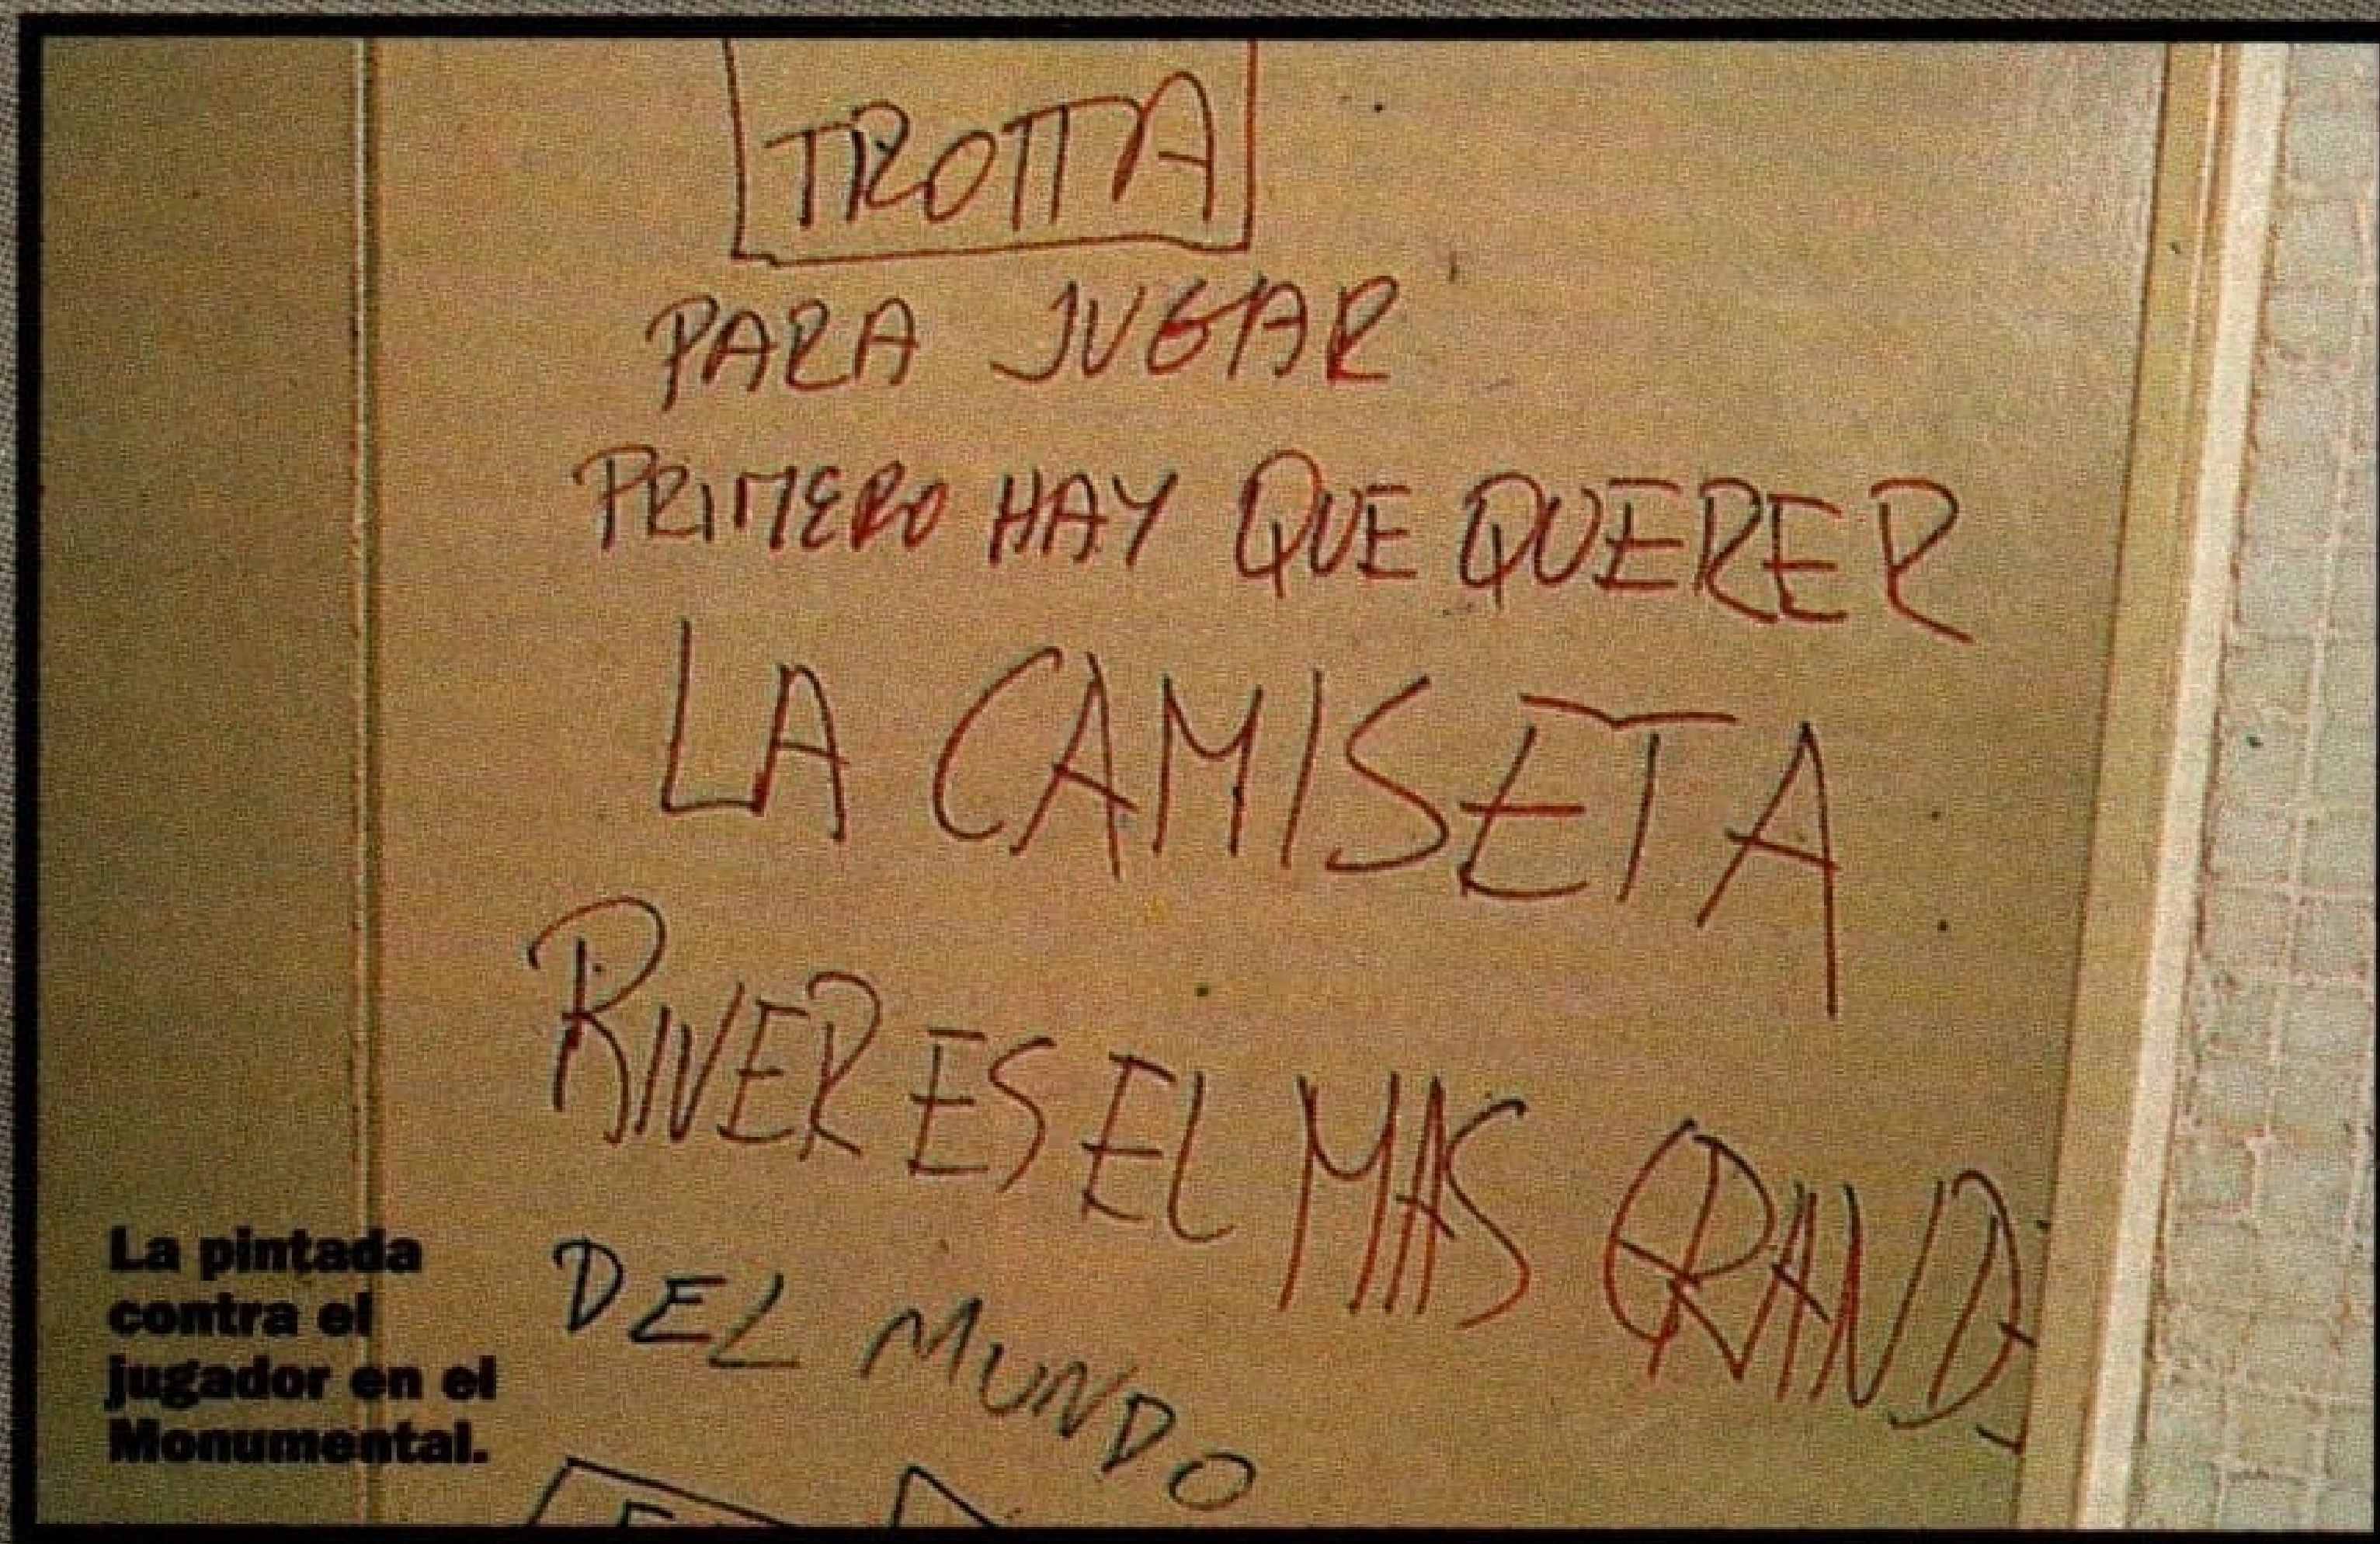 TROTTA
PARA JUGAR
PRIMERO HAY QUE QUERER
LA CAMISETA
RIVER ES EL MAS GRANDE
DEL MUNDO
La pintada
contra el
jugador en el
Monumental.